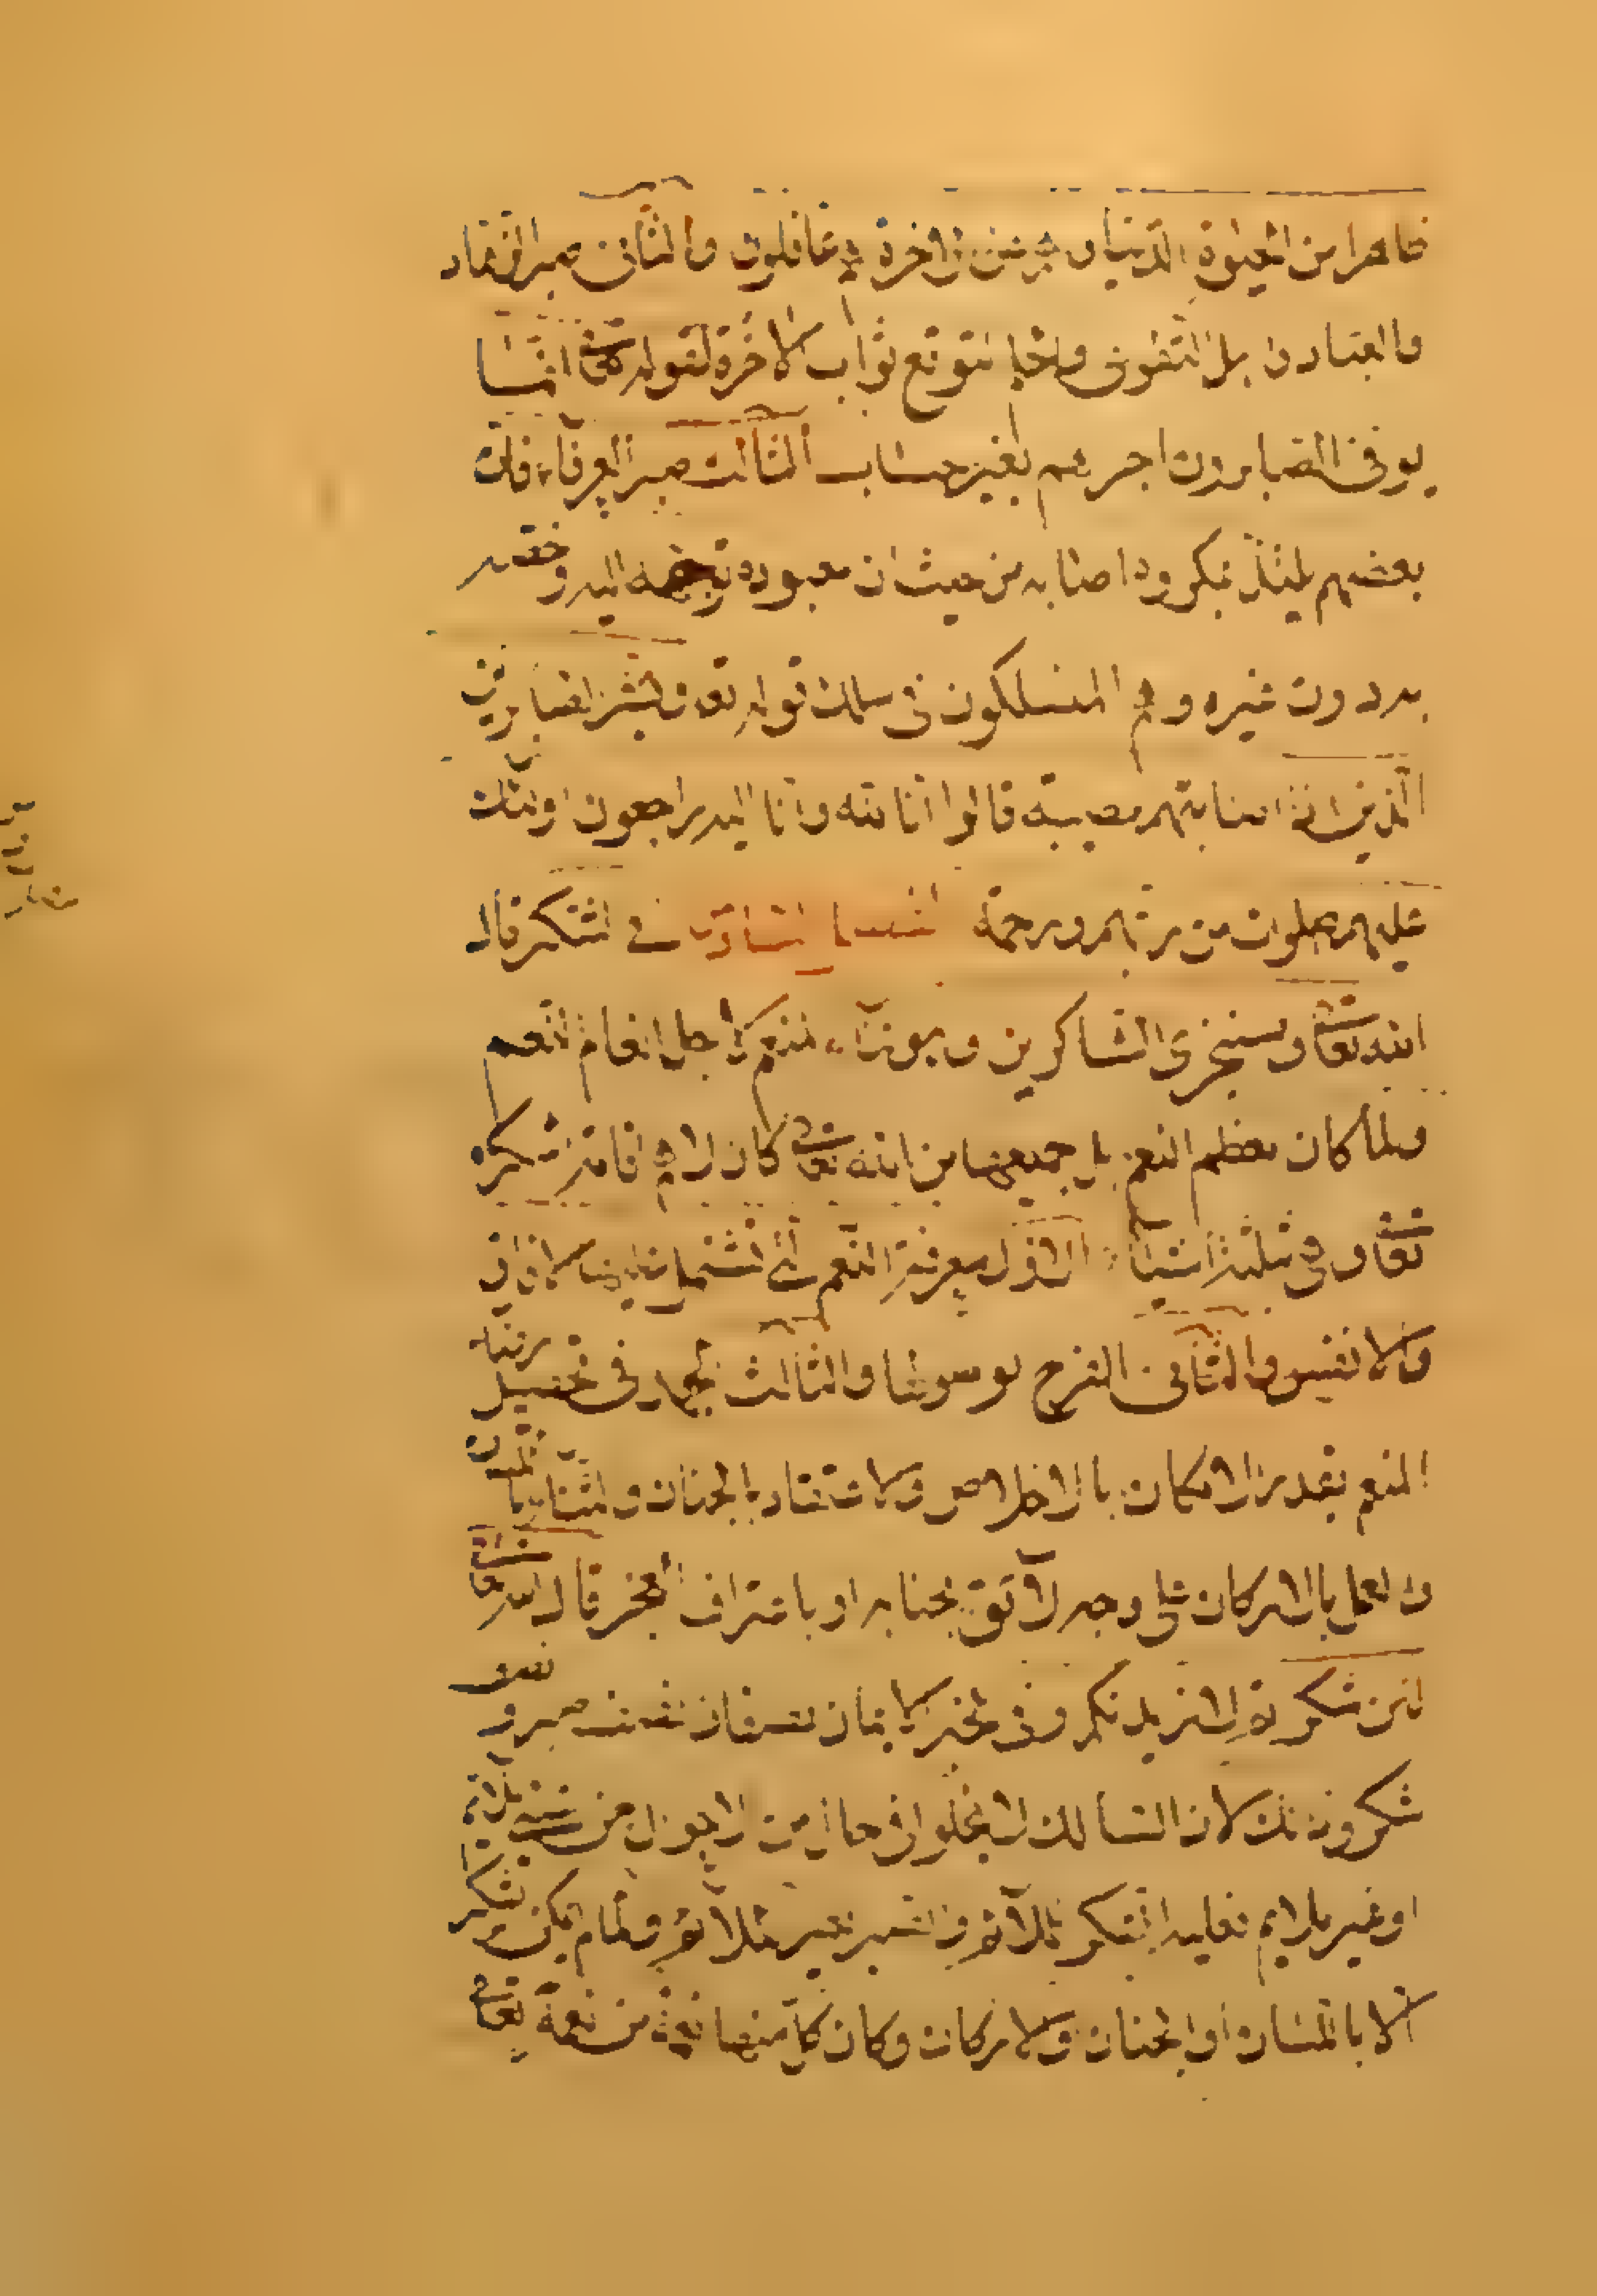 ظاهرا من الحيوة الدنيا وهم عن الاخرة هم غافلون والثانى صبر الزهاد
والعباد واهل التقوى وارباب لتوقع ثواب الاخرة لقوله تعالى انما
يوفى الصابرون اجرهم بغير حساب الثالث صبر العرفاء فان
بعضهم يلتذ بمكروه اصابه من حيث ان معبوده توجهه اليه وخصه
به دون غيره وهم المنسلكون فى سلك قوله تعالى وبشر الصابرين
الذين اذا اصابتهم مصيبة قالوا انا لله وانا اليه راجعون اولئك
عليهم صلوات من ربهم ورحمة الفصل السادس فى الشكر قال
الله تعالى وسنجزى الشاكرين وهو ثناء المنعم لاجل انعام النعم
ولما كان معظم النعم بل جميعها من الله تعالى كان الاهم اقامة شكره
تعالى وهى ثلثة اشياء الاول معرفة النعم التى اشتمل عليها الافاق
والانفس والثانى الفرح بوصولها والثالث الجهد فى تحصيل رضاء
المنعم بقدر الامكان بالاخلاص والاعتقاد بالجنان والثناء باللسان
والعمل بالاركان على وجه لائق بجنابه او باعتراف العجز قال الله تعالى
لئن شكرتم لازيدنكم وفى الخبر الايمان نصفان نصف صبر ونصف
شكر وذلك لان السالك لا يخلو فى حال من الاحوال من شىء ملائم
او غير ملائم فعليه الشكر للملائم والصبر لغير الملائم ولما لم يكن الشكر
الا باللسان او الجنان والاركان وكان كل منها نعمة من نعمة تعالى